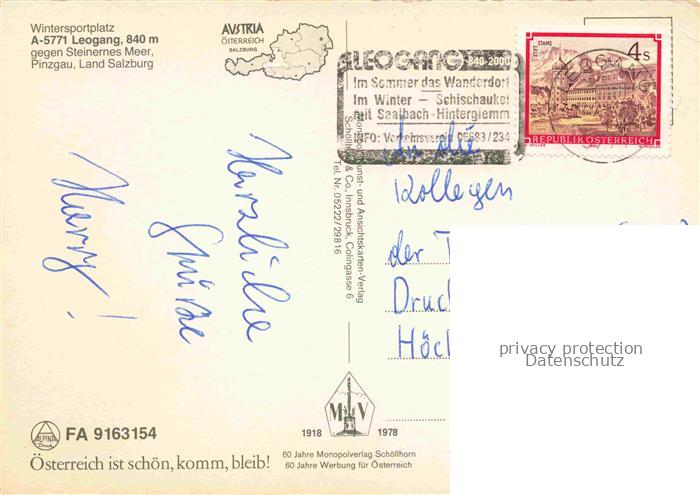 Wintersportplatz
A-5771 Leogang, 840 m
gegen Steinernes Meer,
Pinzgau, Land Salzburg
AVSTRIA
ÖSTERREICH
SALZBURG
LEOGANG 840-2000
Im Sommer das Wanderdorf
Im Winter – Schischaukel
mit Saalbach-Hinterglemm
INFO: Verkehrsverein 06583/234
STIFT STAMS
4 S
REPUBLIK ÖSTERREICH
Herzliche
Grüße
Harry!
Monopol Kunst- und Ansichtskarten-Verlag
Schöllhorn & Co., Innsbruck, Colingasse 6
Tel. Nr. 05222/29816
An die
Kollegen
der T
Druck
Höch
privacy protection
Datenschutz
ALPINA
FA 9163154
Österreich ist schön, komm, bleib!
M V
1918 1978
60 Jahre Monopolverlag Schöllhorn
60 Jahre Werbung für Österreich